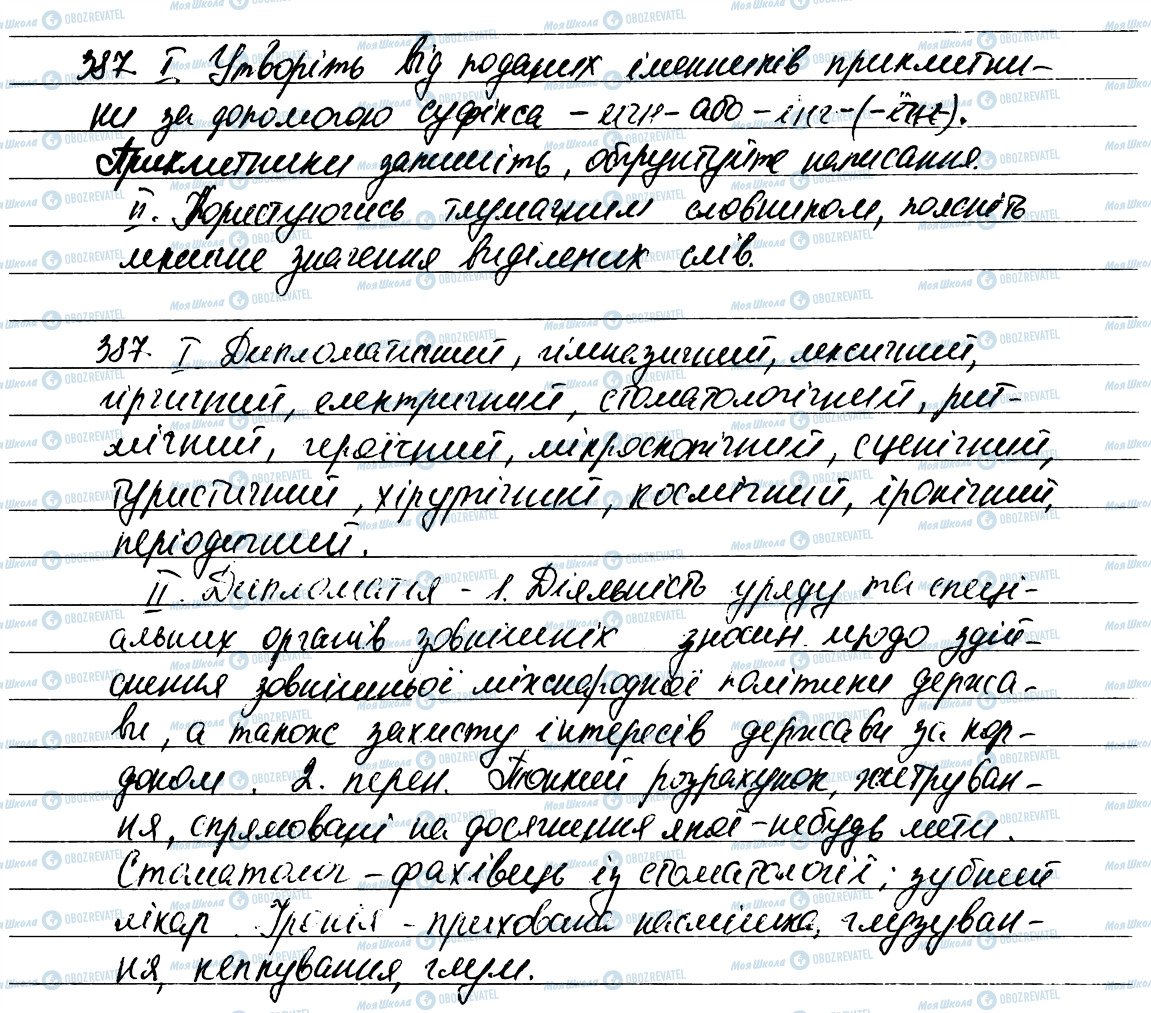 387. I. Утворіть від поданих іменників прикметни-
ки за допомогою суфікса -ичн- або -ічн- (-їчн-).
Прикметники запишіть, обґрунтуйте написання.
II. Користуючись тлумачним словником, поясніть
лексичне значення виділених слів.
387. I Дипломатичний, гімназичний, лексичний,
ліричний, електричний, стоматологічний, рит-
мічний, героїчний, мікроскопічний, сценічний,
туристичний, хірургічний, космічний, іронічний,
періодичний.
II. Дипломатія - 1. Діяльність уряду та спеці-
альних органів зовнішніх зносин щодо здій-
снення зовнішньої міжнародної політики держа-
ви, а також захисту інтересів держави за кор-
доном. 2. перен. Тонкий розрахунок, хитруван-
ня, спрямовані на досягнення якої-небудь мети.
Стоматолог - фахівець із стоматології; зубний
лікар Іронія - прихована насмішка, глузуван-
ня, кепкування, глум.